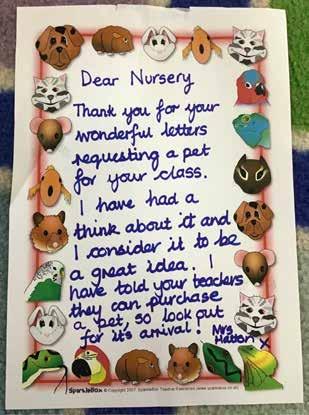 Dear Nursery
Thank you for your
wonderful letters
requesting a pet
for your class.
I have had a
think about it and
I consider it to be
a great idea. I
have told your teachers
they can purchase
a pet, so look out
for it's arrival! Mrs
Hatton x
SparkleBox © Copyright 2007, SparkleBox Teacher Resources (www.sparklebox.co.uk)